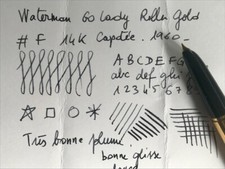 Waterman 60 Lady Rolled Gold
# F 14K Capotée . 1960
A B C D E F G
abc def ghi
1 2 3 4 5 6 7 8
Très bonne plume.
bonne glisse